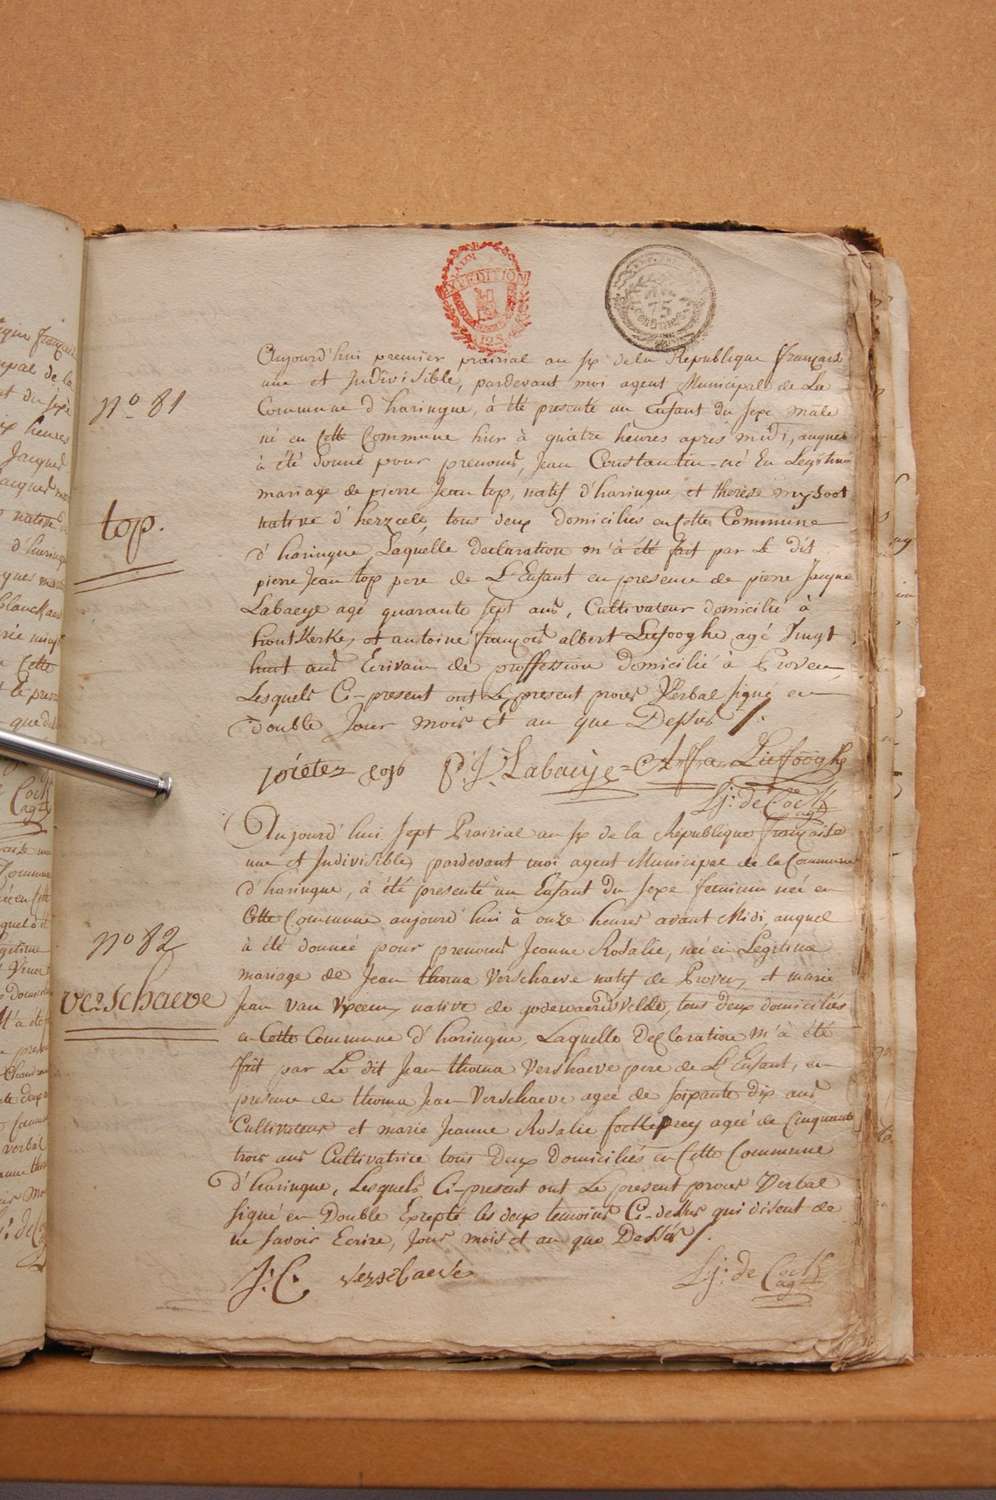 EXPEDITION
125
75
N° 81
top.
Aujourd'hui premier prairial an six de la Republique française
une et Indivisible, pardevant moi agent Municipale de La
Commune d'haringue, à été presenté un Enfant du sexe male
né en Cette Commune hier à quàtre heures aprés midi, auquel
à été donné pour prenoms, Jean Constantin né En Legitime
mariage de pierre Jean top, natif d'haringue, et therèse
native d'herzeele, tous deux domiciliés en Cette Commune
d'haringue, Laquelle declaration m'à été fait par Le dit
pierre Jean top pere de L'Enfant en presence de pierre Jacque
Labaeye agé quarante sept ans, Cultivateur domicilié à
houtkerke, et antoine françois albert Liefooghe, agé Vingt
huit ans Ecrivain de proffession domicilié à Proven,
Lesquels Ci-present ont Le present proces Verbal signé en
double Jour mois et an que Dessus /.
P. J. Labaeye Liefooghe
L. j. de Cock
agt
Aujourd'hui sept Prairial an six de la Republique française
une et Indivisible, pardevant moi agent Municipal de la Commune
d'haringue, à été presenté un Enfant du sexe feminin née en
Cette Commune aujourd'hui à onze heures avant Midi, auquel
à été donneé pour prenoms Jeanne Rosalie, neé en Legitime
N° 82
mariage de Jean thoma Verschaeve natif de Proven, et marie
verschaeve
Jean van native de godewaersvelde, tous deux domiciliés
en Cette Commune d'haringue, Laquelle Declaration m'à été
fait par Le dit Jean thoma Vershaeve pere de L'Enfant, en
presence de thoma Jean Verschaeve ageé de soixante dix ans
Cultivateur et marie Jeanne Rosalie ageé de Cinquante
trois ans Cultivatrice tous deux Domiciliés en Cette Commune
d'haringue, Lesquels Ci-present ont Le present proces Verbal
signé en Double Excepté les deux temoins Ci-dessus qui disent de
ne savoir Ecrire, Jour mois et an que Dessus /.
J. C. verschaeve L. j. de Cock
agt